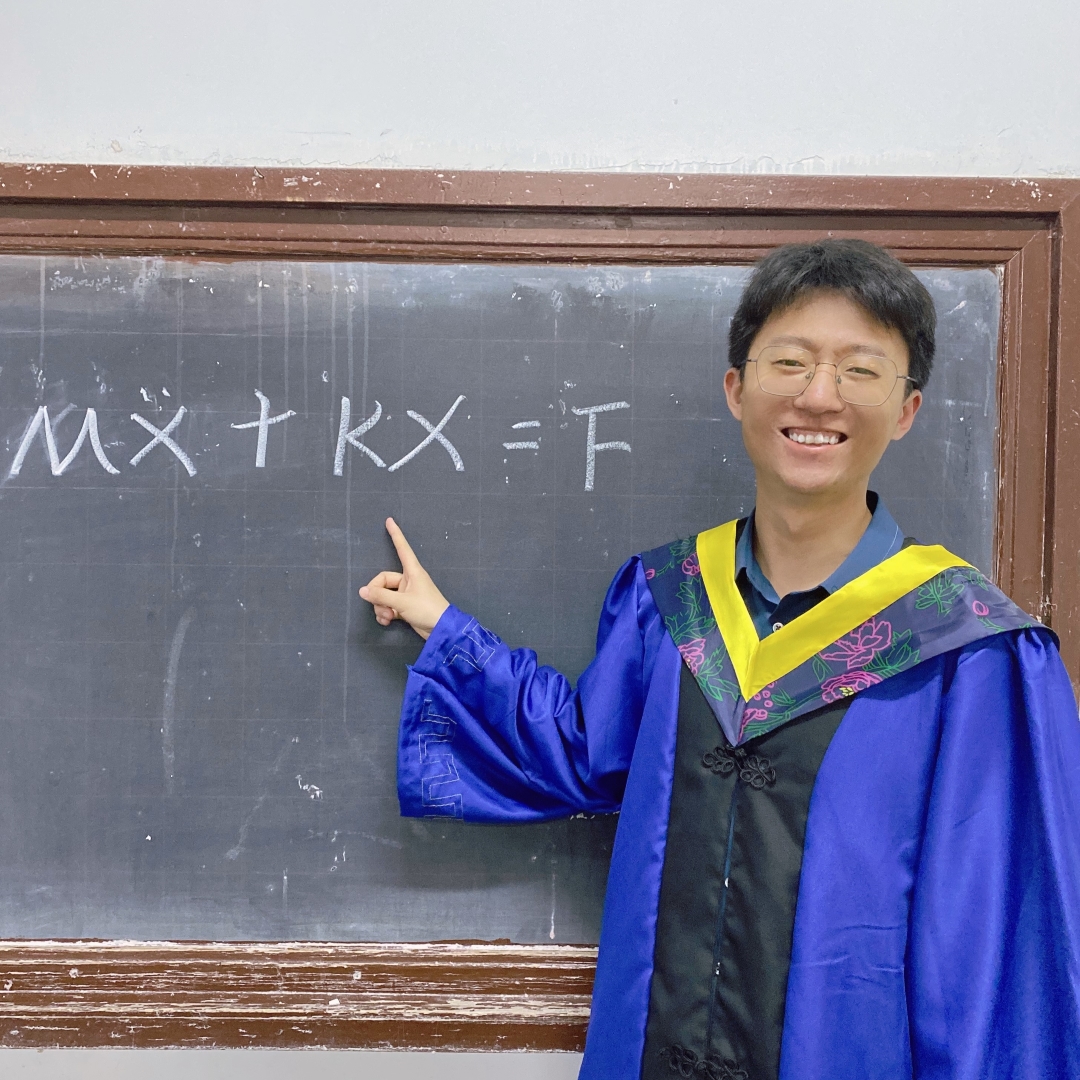 MẌ + KX = F